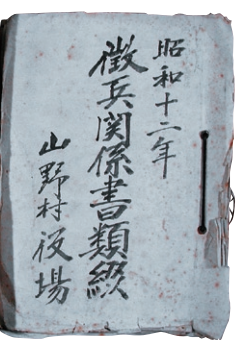 昭和十二年
徴兵関係書類綴
山野村役場